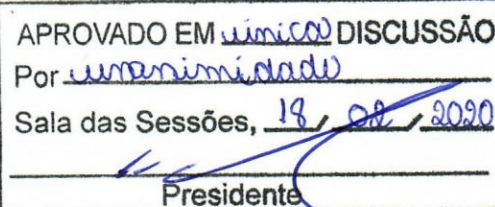 APROVADO EM única DISCUSSÃO
Por unanimidade
Sala das Sessões, 18 / 02 / 2020
Presidente